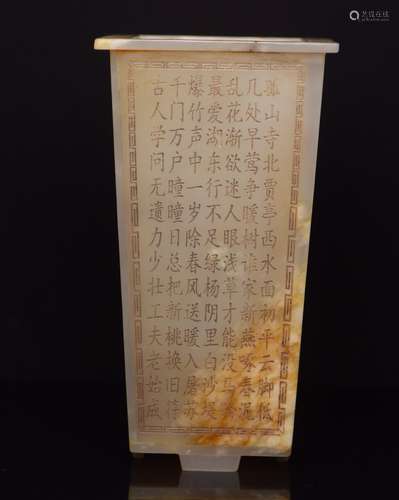 孤山寺北贾亭西水面初平云脚低
几处早莺争暖树谁家新燕啄春泥
乱花渐欲迷人眼浅草才能没马蹄
最爱湖东行不足绿杨阴里白沙堤
爆竹声中一岁除春风送暖入屠苏
千门万户瞳瞳日总把新桃换旧符
古人学问无遗力少壮工夫老始成